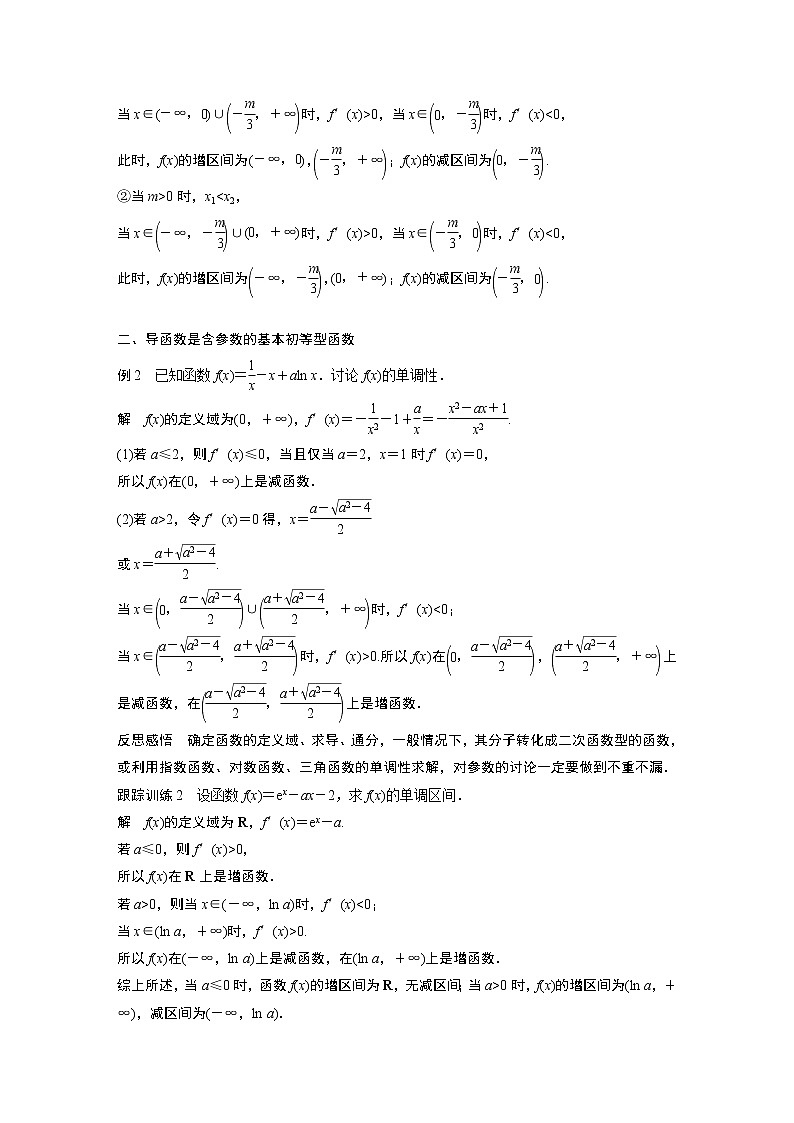 当 x∈(-∞，0)∪(-m/3，+∞)时，f′(x)>0，当 x∈(0，-m/3)时，f′(x)<0，
此时，f(x)的增区间为(-∞，0)，(-m/3，+∞)；f(x)的减区间为(0，-m/3).
②当 m>0 时，x₁<x₂，
当 x∈(-∞，-m/3)∪(0，+∞)时，f′(x)>0，当 x∈(-m/3，0)时，f′(x)<0，
此时，f(x)的增区间为(-∞，-m/3)，(0，+∞)；f(x)的减区间为(-m/3，0).
二、导函数是含参数的基本初等型函数
例2　已知函数 f(x)=1/x-x+aln x．讨论 f(x)的单调性．
解　f(x)的定义域为(0，+∞)，f′(x)=-1/x²-1+a/x=-(x²-ax+1)/x².
(1)若 a≤2，则 f′(x)≤0，当且仅当 a=2，x=1 时 f′(x)=0，
所以 f(x)在(0，+∞)上是减函数．
(2)若 a>2，令 f′(x)=0 得，x=(a-√(a²-4))/2
或 x=(a+√(a²-4))/2.
当 x∈(0，(a-√(a²-4))/2)∪((a+√(a²-4))/2，+∞)时，f′(x)<0；
当 x∈((a-√(a²-4))/2，(a+√(a²-4))/2)时，f′(x)>0.所以 f(x)在(0，(a-√(a²-4))/2)，((a+√(a²-4))/2，+∞)上
是减函数，在((a-√(a²-4))/2，(a+√(a²-4))/2)上是增函数．
反思感悟　确定函数的定义域、求导、通分，一般情况下，其分子转化成二次函数型的函数，
或利用指数函数、对数函数、三角函数的单调性求解，对参数的讨论一定要做到不重不漏．
跟踪训练2　设函数 f(x)=eˣ-ax-2，求 f(x)的单调区间．
解　f(x)的定义域为 R，f′(x)=eˣ-a.
若 a≤0，则 f′(x)>0，
所以 f(x)在 R 上是增函数．
若 a>0，则当 x∈(-∞，ln a)时，f′(x)<0；
当 x∈(ln a，+∞)时，f′(x)>0.
所以 f(x)在(-∞，ln a)上是减函数，在(ln a，+∞)上是增函数．
综上所述，当 a≤0 时，函数 f(x)的增区间为 R，无减区间；当 a>0 时，f(x)的增区间为(ln a，+
∞)，减区间为(-∞，ln a)．